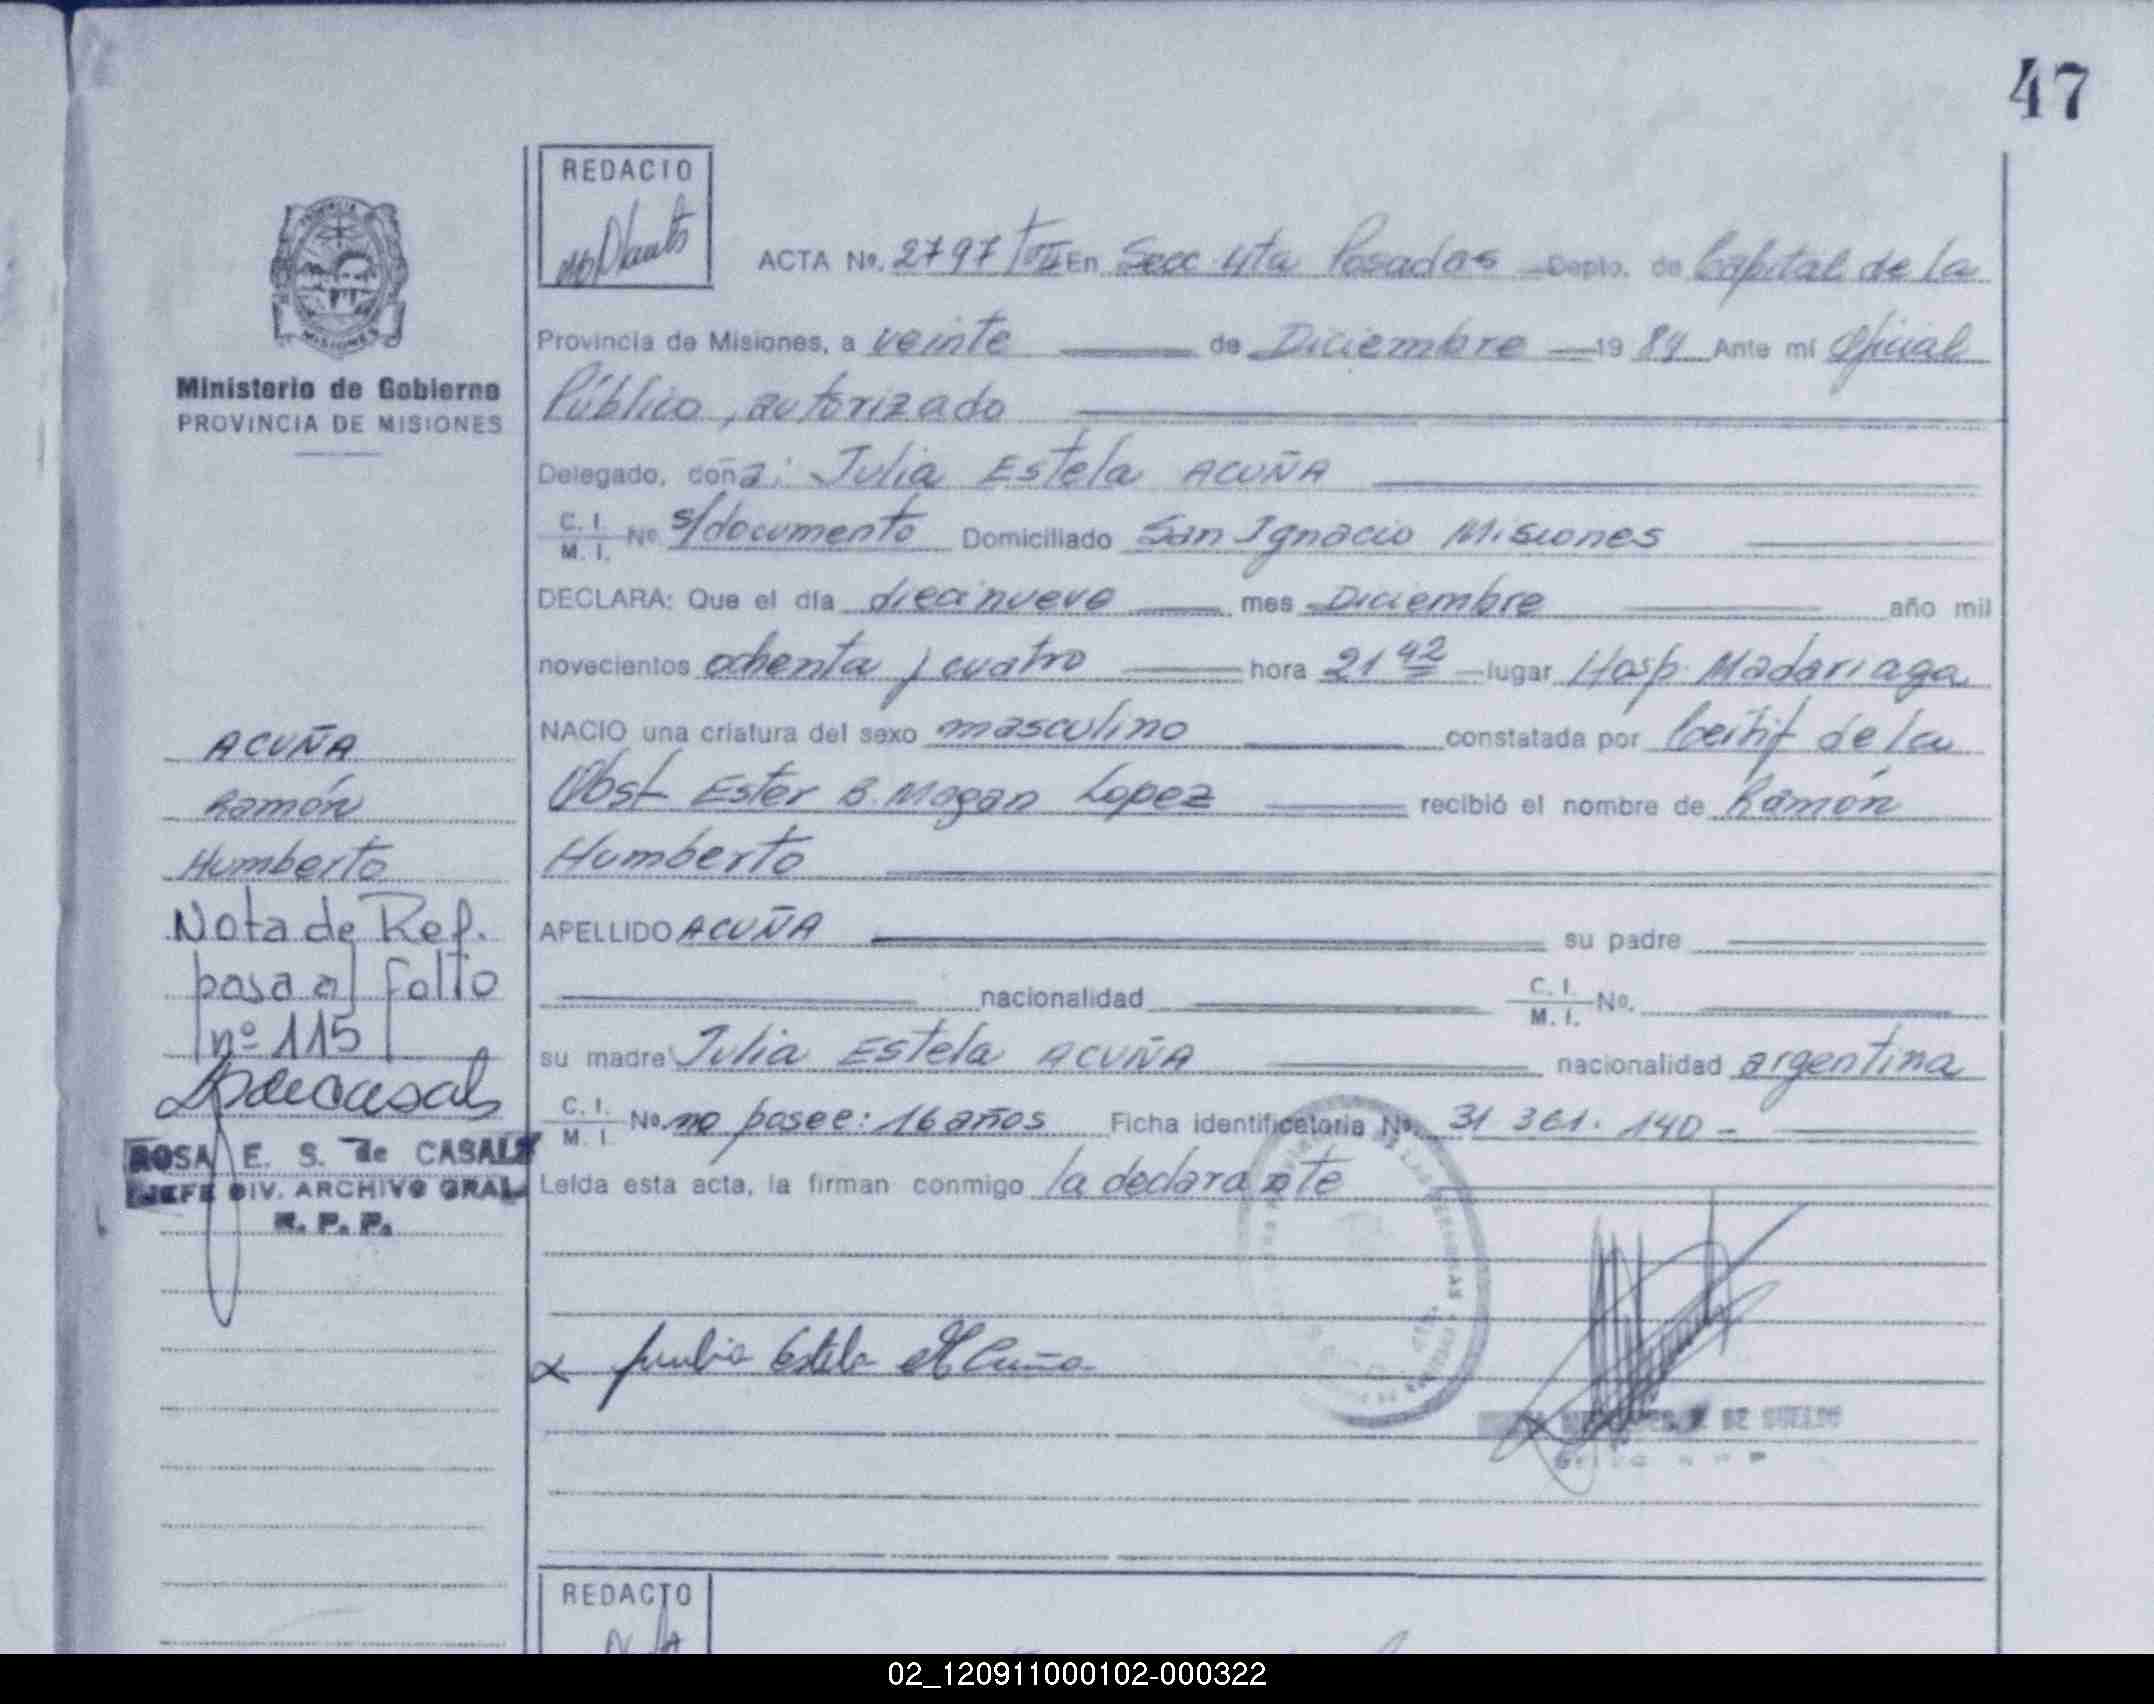 47
REDACTO
ACTA Nº. 2797 / En Secc 4ta Posadas Depto. de Capital de la
Provincia de Misiones, a veinte de Diciembre 1984 Ante mí Oficial
Público, autorizado
Delegado, doña: Julia Estela ACUÑA
C. I.
M. I. Nº s/documento Domiciliado San Ignacio Misiones
DECLARA: Que el día diecinueve mes Diciembre año mil
novecientos ochenta y cuatro hora 21 42 lugar Hosp. Madariaga
NACIO una criatura del sexo masculino constatada por Certif de la
Obst Ester B. Magan Lopez recibió el nombre de Ramón
Humberto
APELLIDO ACUÑA su padre
nacionalidad C. I.
M. I. Nº.
su madre Julia Estela ACUÑA nacionalidad argentina
C. I.
M. I. Nº. no posee: 16 años Ficha identificatoria Nº. 31 361. 140 -
Leída esta acta, la firman conmigo la declarante
Julia Estela Acuña
PROVINCIA
MISIONES
Ministerio de Gobierno
PROVINCIA DE MISIONES
ACUÑA
Ramón
Humberto
Nota de Ref.
pasa al folio
nº 115
ROSA E. S. de CASALS
JEFE DIV. ARCHIVO GRAL
R. P. P.
REDACTO
02_120911000102-000322